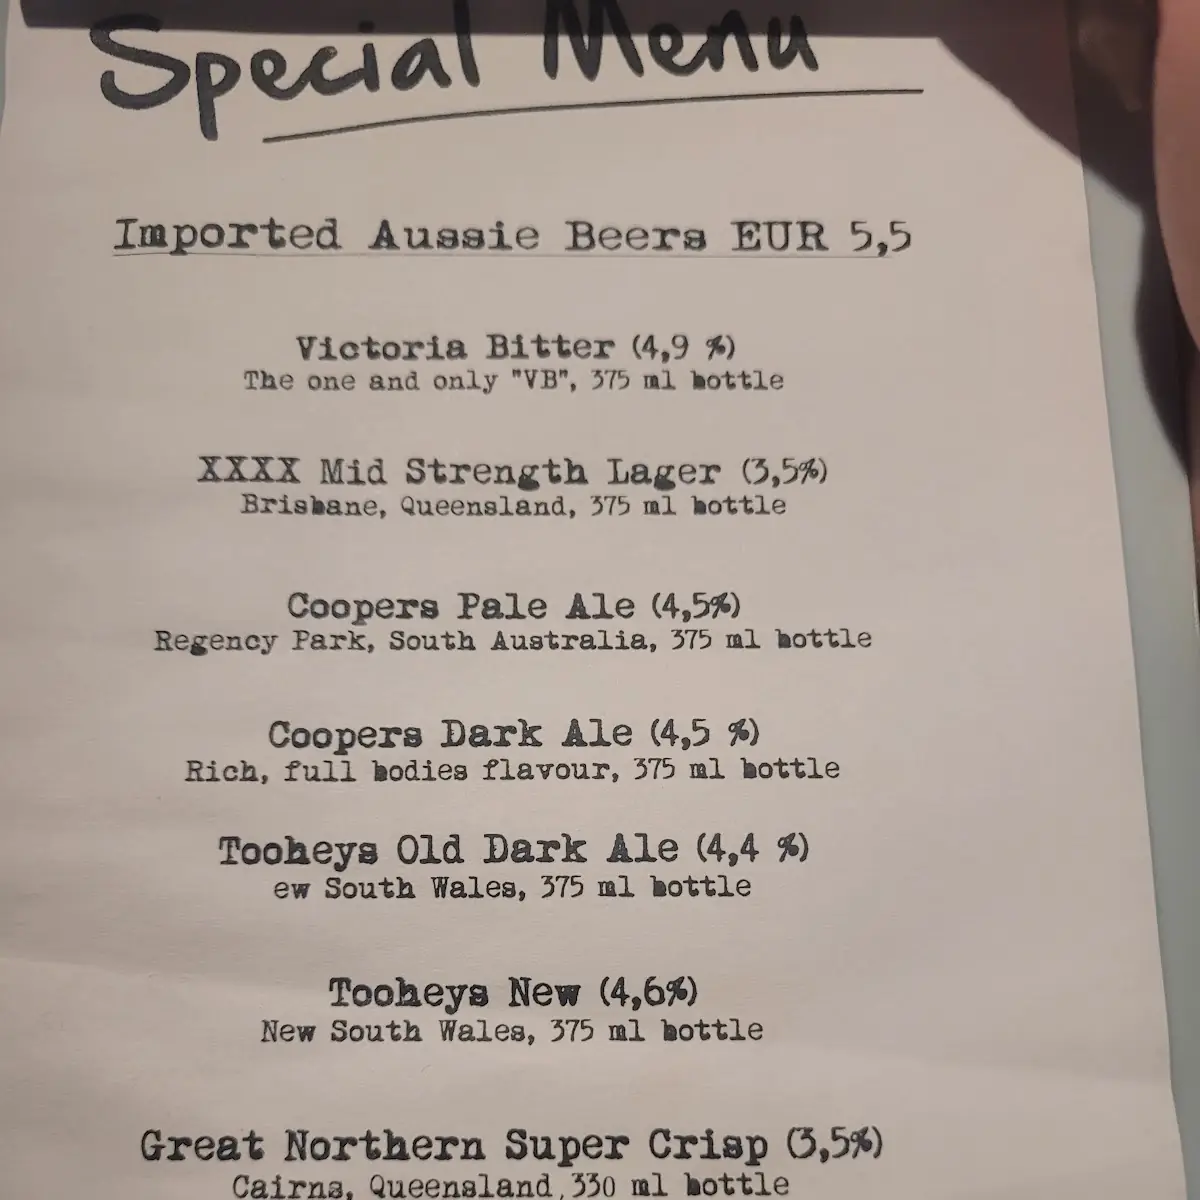 Special Menu
Imported Aussie Beers EUR 5,5
Victoria Bitter (4,9 %)
The one and only "VB", 375 ml bottle
XXXX Mid Strength Lager (3,5%)
Brisbane, Queensland, 375 ml bottle
Coopers Pale Ale (4,5%)
Regency Park, South Australia, 375 ml bottle
Coopers Dark Ale (4,5 %)
Rich, full bodies flavour, 375 ml bottle
Tooheys Old Dark Ale (4,4 %)
ew South Wales, 375 ml bottle
Tooheys New (4,6%)
New South Wales, 375 ml bottle
Great Northern Super Crisp (3,5%)
Cairns, Queensland, 330 ml bottle